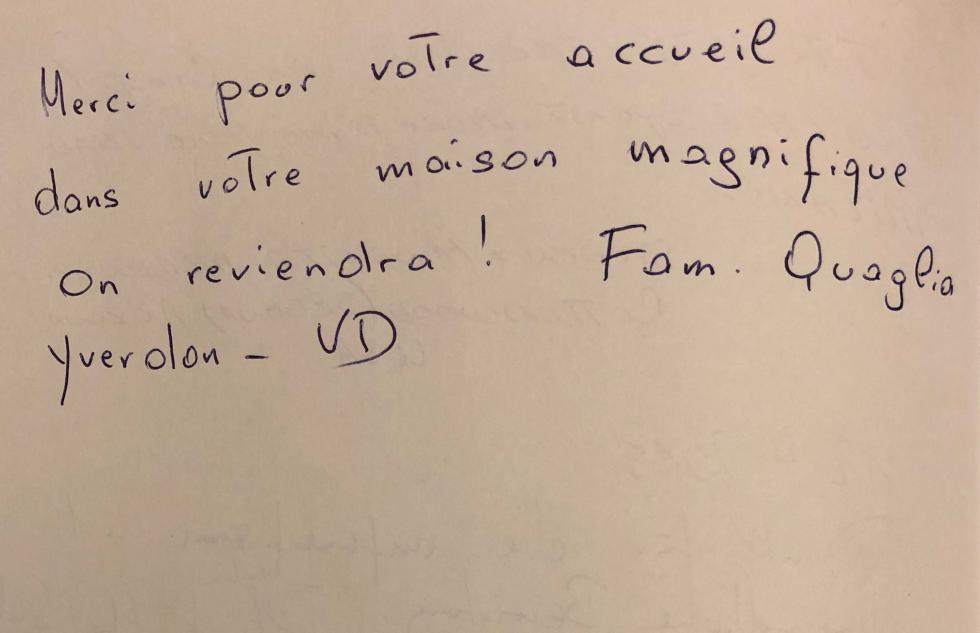 Merci pour votre accueil
dans votre maison magnifique
On reviendra ! Fam. Quaglia
Yverdon - VD